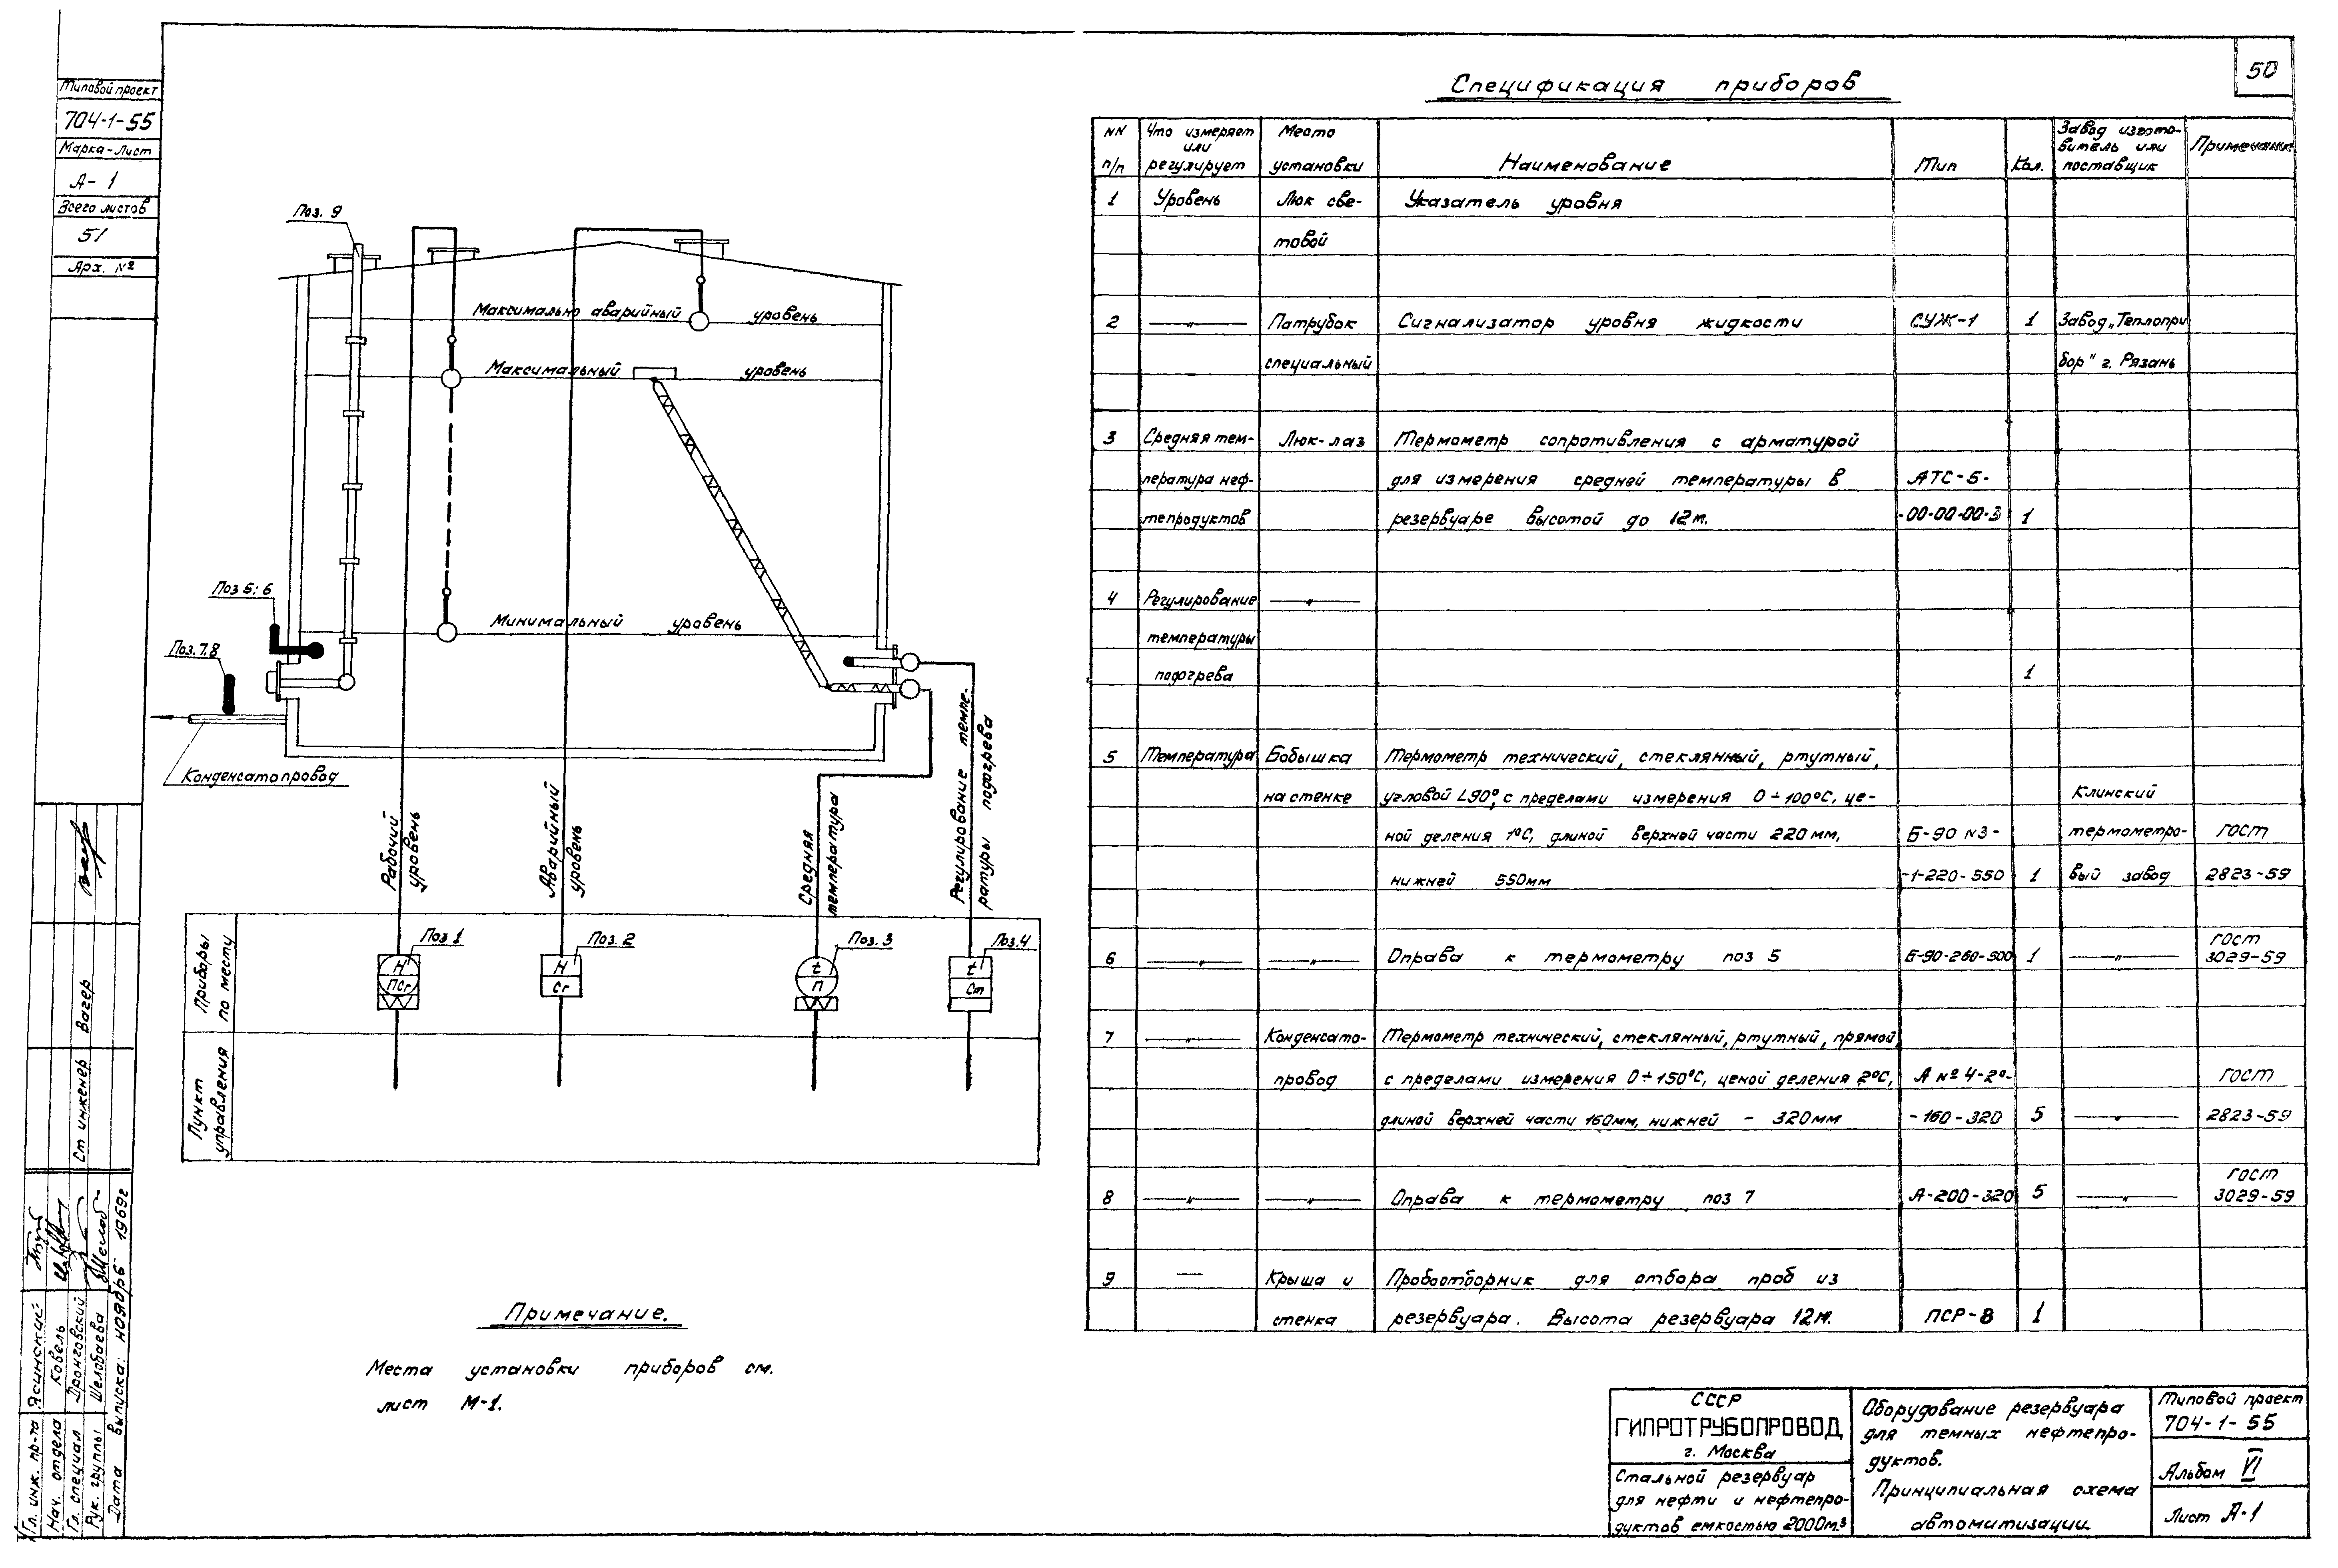 50
Типовой проект
704-1-55
Марка-Лист
А-1
Всего листов
51
Арх. №
Поз. 9
Максимально аварийный уровень
Максимальный уровень
Минимальный уровень
Поз 5; 6
Поз. 7.8
Конденсатопровод
Рабочий
уровень
Аварийный
уровень
Средняя
температура
Регулирование темпе-
ратуры подогрева
Приборы
по месту
Пункт
управления
Поз 1
Н
ПСг
Поз. 2
Н
Сг
Поз. 3
t
П
Поз.4
t
Ст
Примечание.
Места установки приборов см.
лист М-1.
Спецификация приборов
NN п/п
Что измеряет или регулирует
Место установки
Наименование
Тип
Кол.
Завод изгото-
витель или
поставщик
1 Уровень Люк све- Указатель уровня
товой
2 —"— Патрубок Сигнализатор уровня жидкости СУЖ-1 1 Завод „Теплопри
специальный бор" г. Рязань
3 Средняя тем- Люк-лаз Термометр сопротивления с арматурой
пература неф- для измерения средней температуры в АТС-5-
тепродуктов резервуаре высотой до 12м. -00-00-00-3 1
4 Регулирование —"—
температуры
подогрева 1
5 Температура Бобышка Термометр технический, стеклянный, ртутный,
на стенке угловой L90°, с пределами измерения 0÷100°С, це- Клинский
ной деления 1°С, длиной верхней части 220 мм, Б-90 N3- термометро- ГОСТ
нижней 550мм -1-220-550 1 вый завод 2823-59
6 —"— —"— Оправа к термометру поз 5 Б-90-260-500 1 —"— ГОСТ 3029-59
7 —"— Конденсато- Термометр технический, стеклянный, ртутный, прямой
провод с пределами измерения 0÷150°С, ценой деления 2°С, А № 4-2°- ГОСТ
длиной верхней части 160мм, нижней - 320мм -160-320 5 —"— 2823-59
8 —"— —"— Оправа к термометру поз 7 А-200-320 5 —"— ГОСТ 3029-59
9 — Крыша и Пробоотборник для отбора проб из
стенка резервуара. Высота резервуара 12м. ПСР-8 1
Ст инженер Вагер
Гл. инж. пр-та Ясинский
Нач. отдела Ковель
Гл. специал Дронговский
Рук. группы Шелобаева
Дата выпуска: ноябрь 1969г
СССР
ГИПРОТРУБОПРОВОД
г. Москва
Стальной резервуар
для нефти и нефтепро-
дуктов емкостью 2000м.³
Оборудование резервуара
для темных нефтепро-
дуктов.
Принципиальная схема
автоматизации
Типовой проект
704-1-55
Альбом VI
Лист А-1